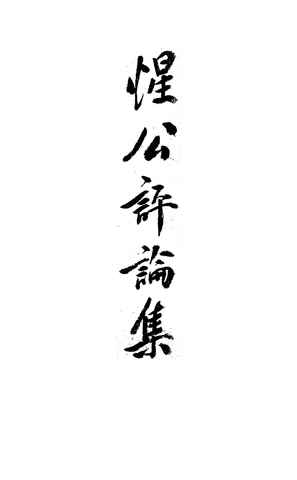 惺公評論集